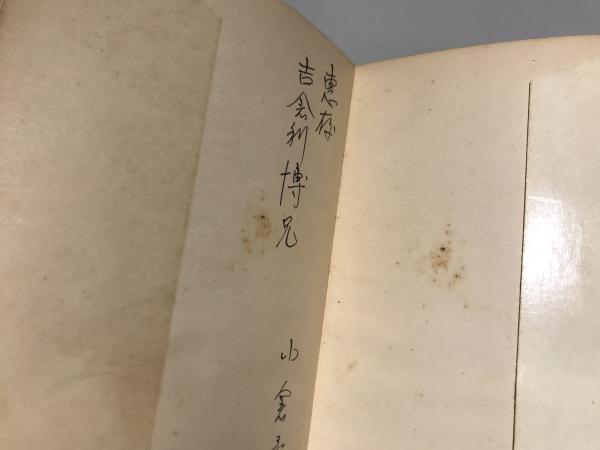 恵存
吉倉利博兄
小倉